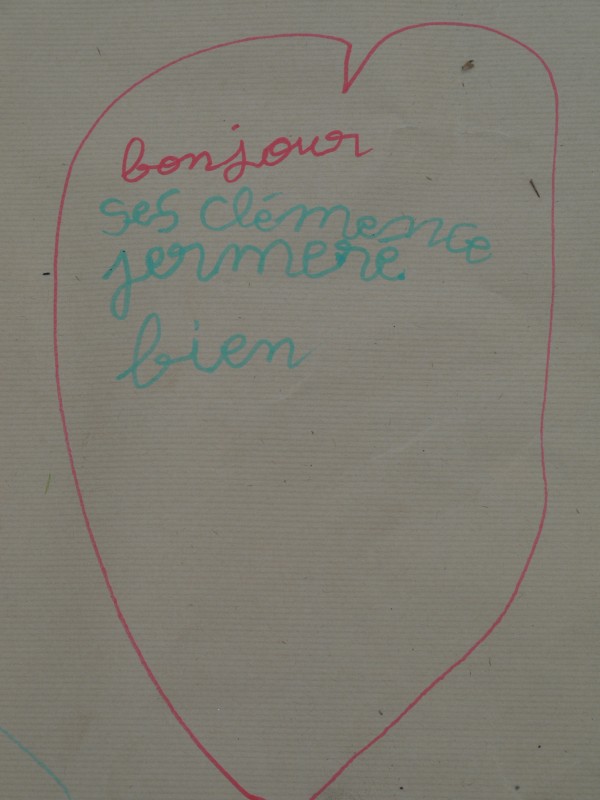 bonjour
ses clémence
jermeré
bien